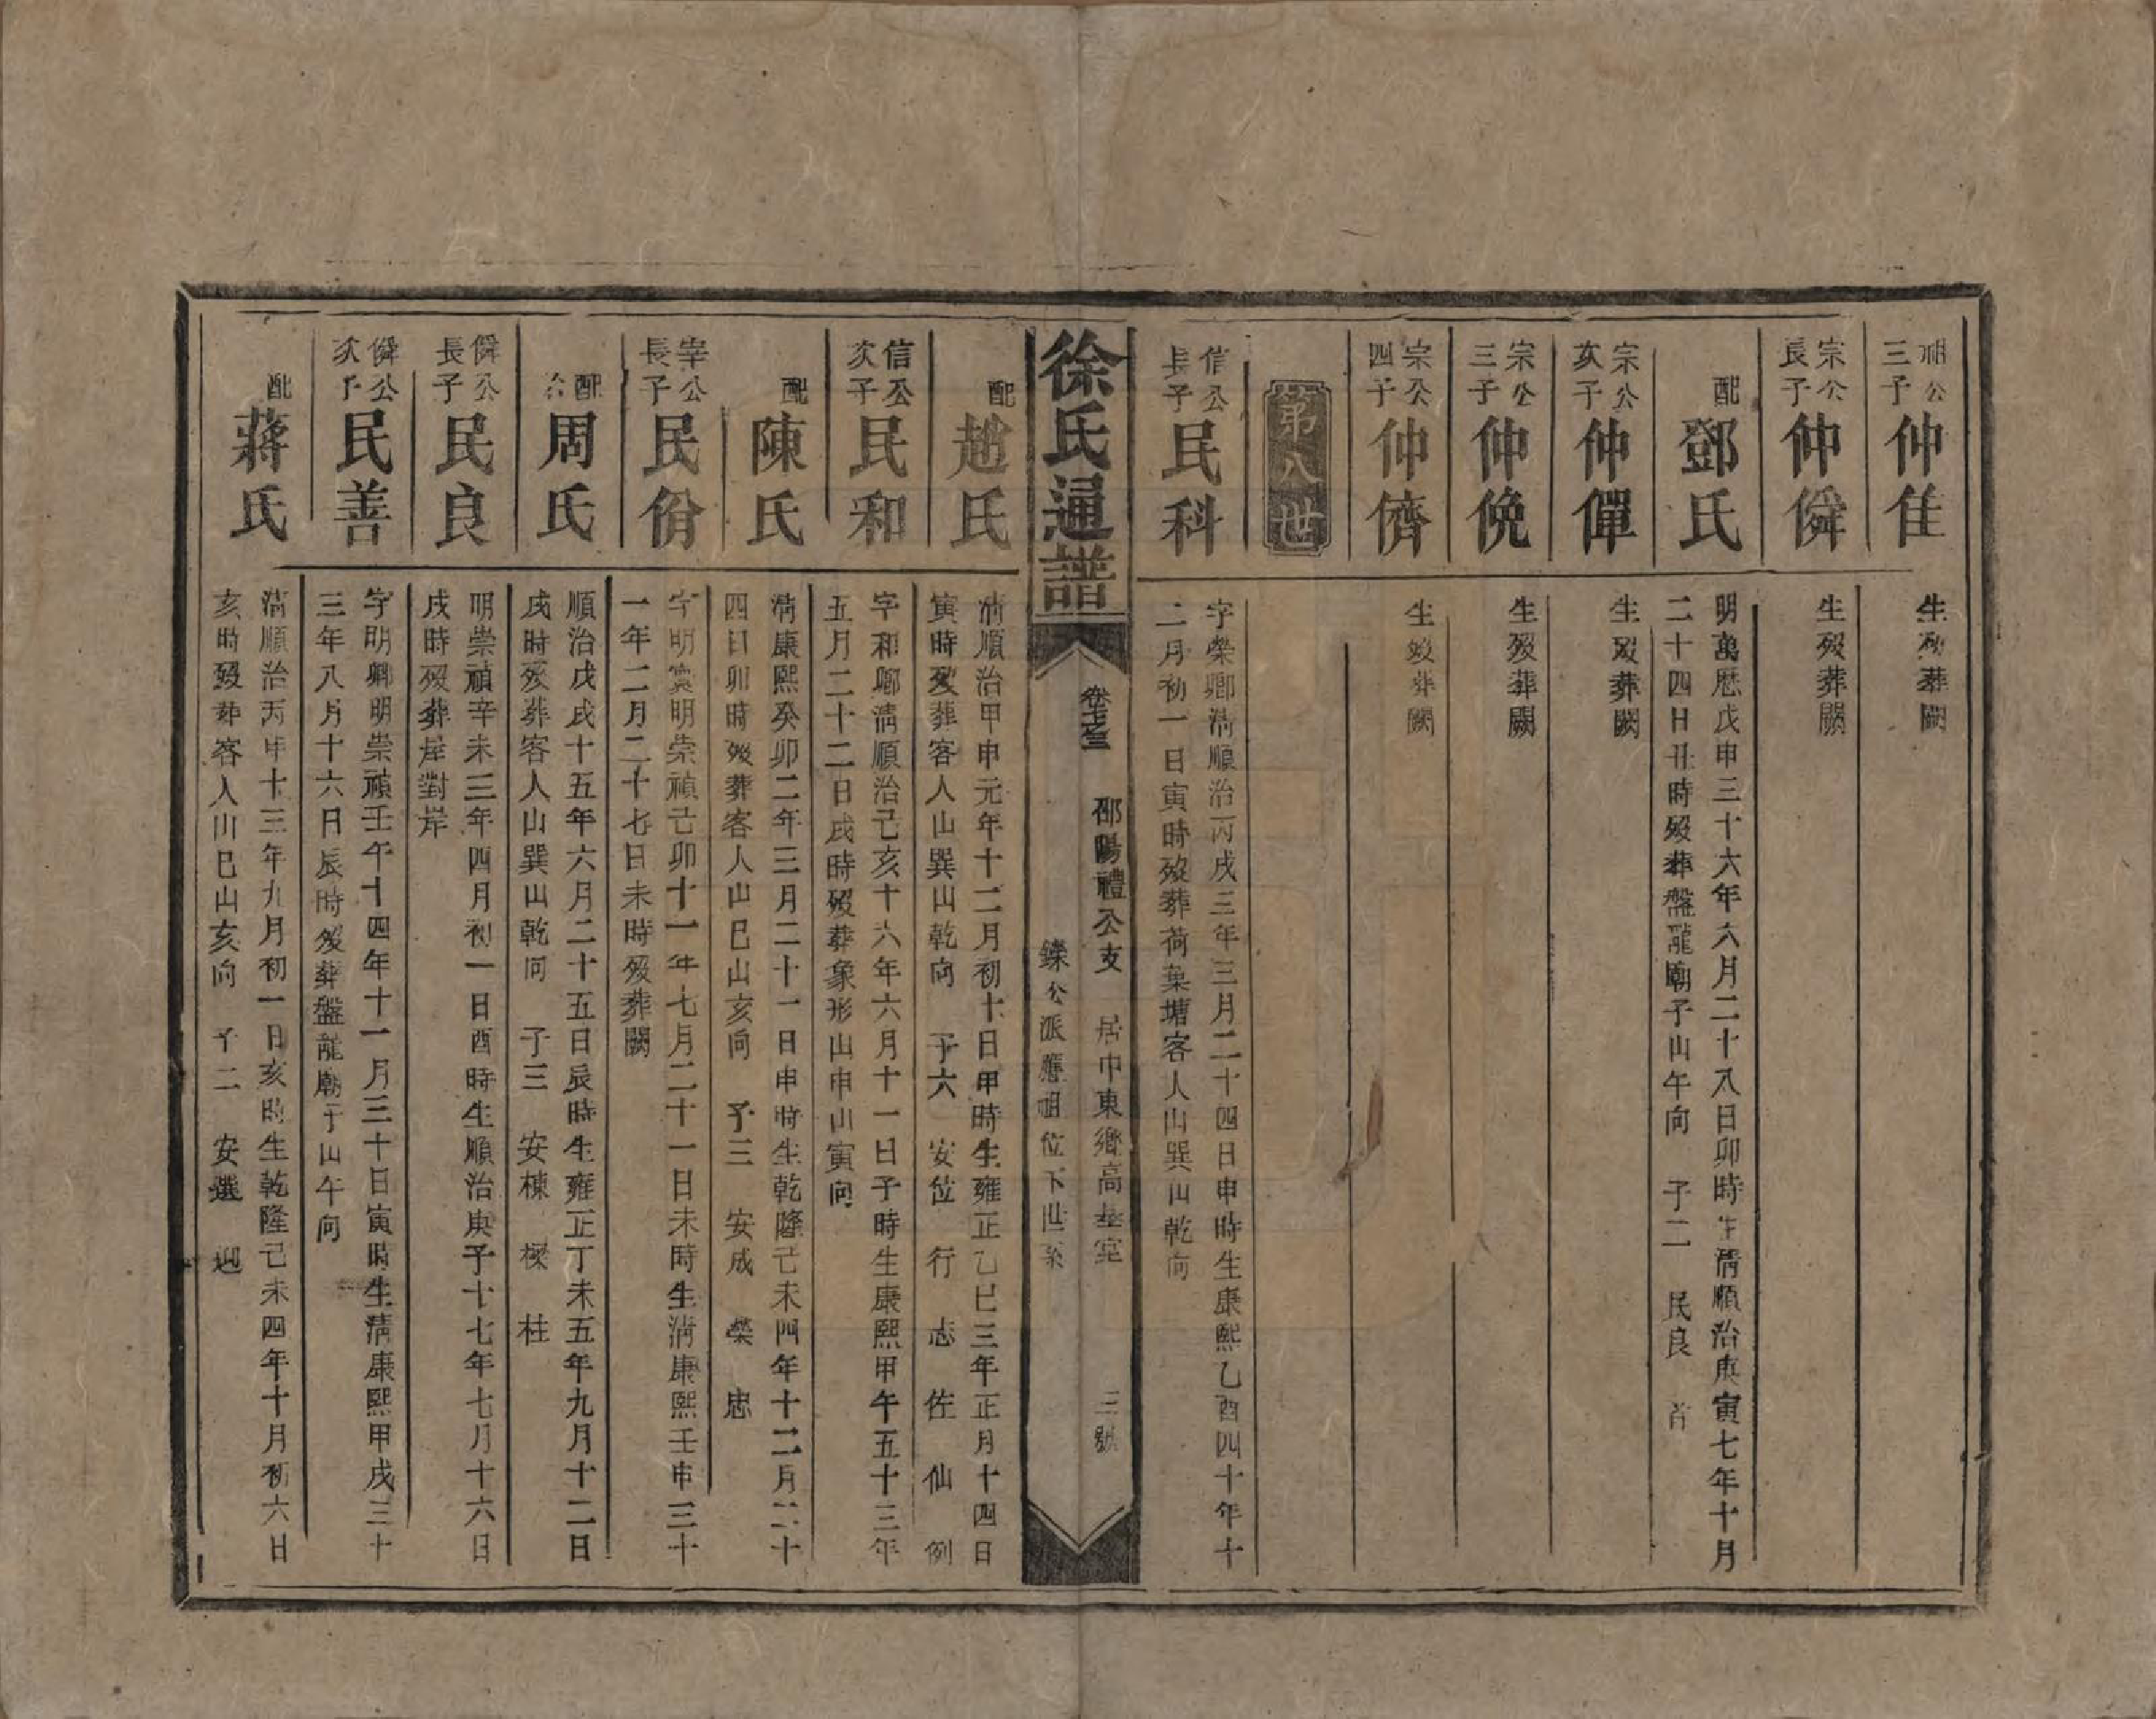 祖公
三子
仲隹
生歿葬闕
宗公
長子
仲僯
生歿葬闕
配
鄧氏
明萬歷戊申三十六年六月二十八日卯時生淸順治庚寅七年十月
二十四日丑時歿葬盤龍廟子山午向　子二　民良　善
宗公
次子
仲僤
生歿葬闕
宗公
三子
仲俛
生歿葬闕
宗公
四子
仲儕
生歿葬闕
第八世
信公
長子
民科
字榮卿淸順治丙戌三年三月二十四日申時生康熙乙酉四十年十
二月初一日寅時歿葬荷葉塘客人山巽山乾向
徐氏通譜
卷七之三
邵陽禮公支　居中東鄉高基堂　三號
鑠公派應祖位下世系
配
趙氏
淸順治甲申元年十二月初十日甲時生雍正乙巳三年正月十四日
寅時歿葬客人山巽山乾向　子六　安位　行　志　佐　仙　例
信公
次子
民和
字和卿淸順治己亥十六年六月十一日子時生康熙甲午五十三年
五月二十二日戌時歿葬象形山申山寅向
配
陳氏
淸康熙癸卯二年三月二十一日申時生乾隆己未四年十二月二十
四日卯時歿葬客人山巳山亥向　子三　安成　榮　忠
宰公
長子
民份
字明賞明崇禎己卯十一年七月二十一日未時生淸康熙壬申三十
一年二月二十七日未時歿葬闕
配
周氏
順治戊戌十五年六月二十五日辰時生雍正丁未五年九月十二日
戌時歿葬客人山巽山乾向　子三　安棟　樑　柱
僯公
長子
民良
明崇禎辛未三年四月初一日酉時生順治庚子十七年七月十六日
戌時歿葬岸對岸
僯公
次子
民善
字明卿明崇禎壬午十四年十一月三十日寅時生淸康熙甲戌三十
三年八月十六日辰時歿葬盤龍廟子山午向
配
蔣氏
淸順治丙申十三年九月初一日亥時生乾隆己未四年十月初六日
亥時歿葬客人山巳山亥向　子二　安選　迥